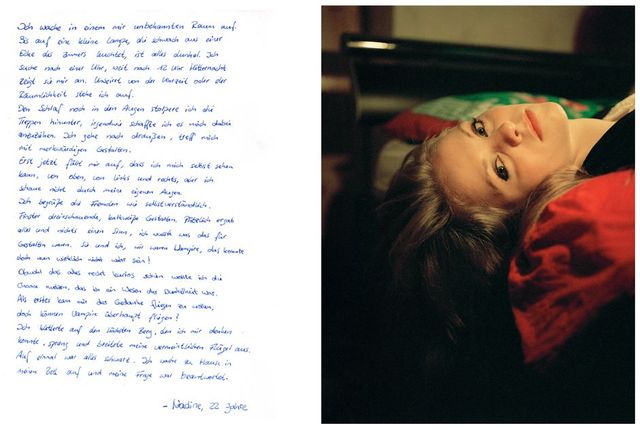 Ich wache in einem mir unbekannten Raum auf.
Bis auf eine kleine Lampe, die schwach aus einer
Ecke des Zimmers leuchtet, ist alles dunkel. Ich
suche nach einer Uhr, weit nach 12 Uhr Mitternacht
zeigt sie mir an. Unbeirrt von der Uhrzeit oder der
Räumlichkeit stehe ich auf.
Den Schlaf noch in den Augen stolpere ich die
Treppen hinunter, irgendwie schaffte ich es mich dabei
anzuziehen. Ich gehe nach draußen, treff mich
mit merkwürdigen Gestalten.
Erst jetzt fällt mir auf, dass ich mich selbst sehen
kann, von oben, von links und rechts, aber ich
schaue nicht durch meine eigenen Augen.
Ich begrüße die Fremden wie selbstverständlich.
Finster dreinschauende, kalkweiße Gestalten. Plötzlich ergab
alles und nichts einen Sinn, ich wusste was das für
Gestalten waren. Sie und ich, wir waren Vampire, das konnte
doch nun wirklich nicht wahr sein!
Obwohl das alles recht kurios schien wollte ich die
Chance nutzen, das ich ein Wesen der Dunkelheit war.
Als erstes kam mir der Gedanke fliegen zu wollen,
doch können Vampire überhaupt fliegen?
Ich kletterte auf den höchsten Berg, den ich mir denken
konnte, sprang und breitete meine vermeintlichen Flügel aus.
Auf einmal war alles schwarz. Ich wache zu Hause in
meinem Bett auf und meine Frage war beantwortet.
- Nadine, 22 Jahre